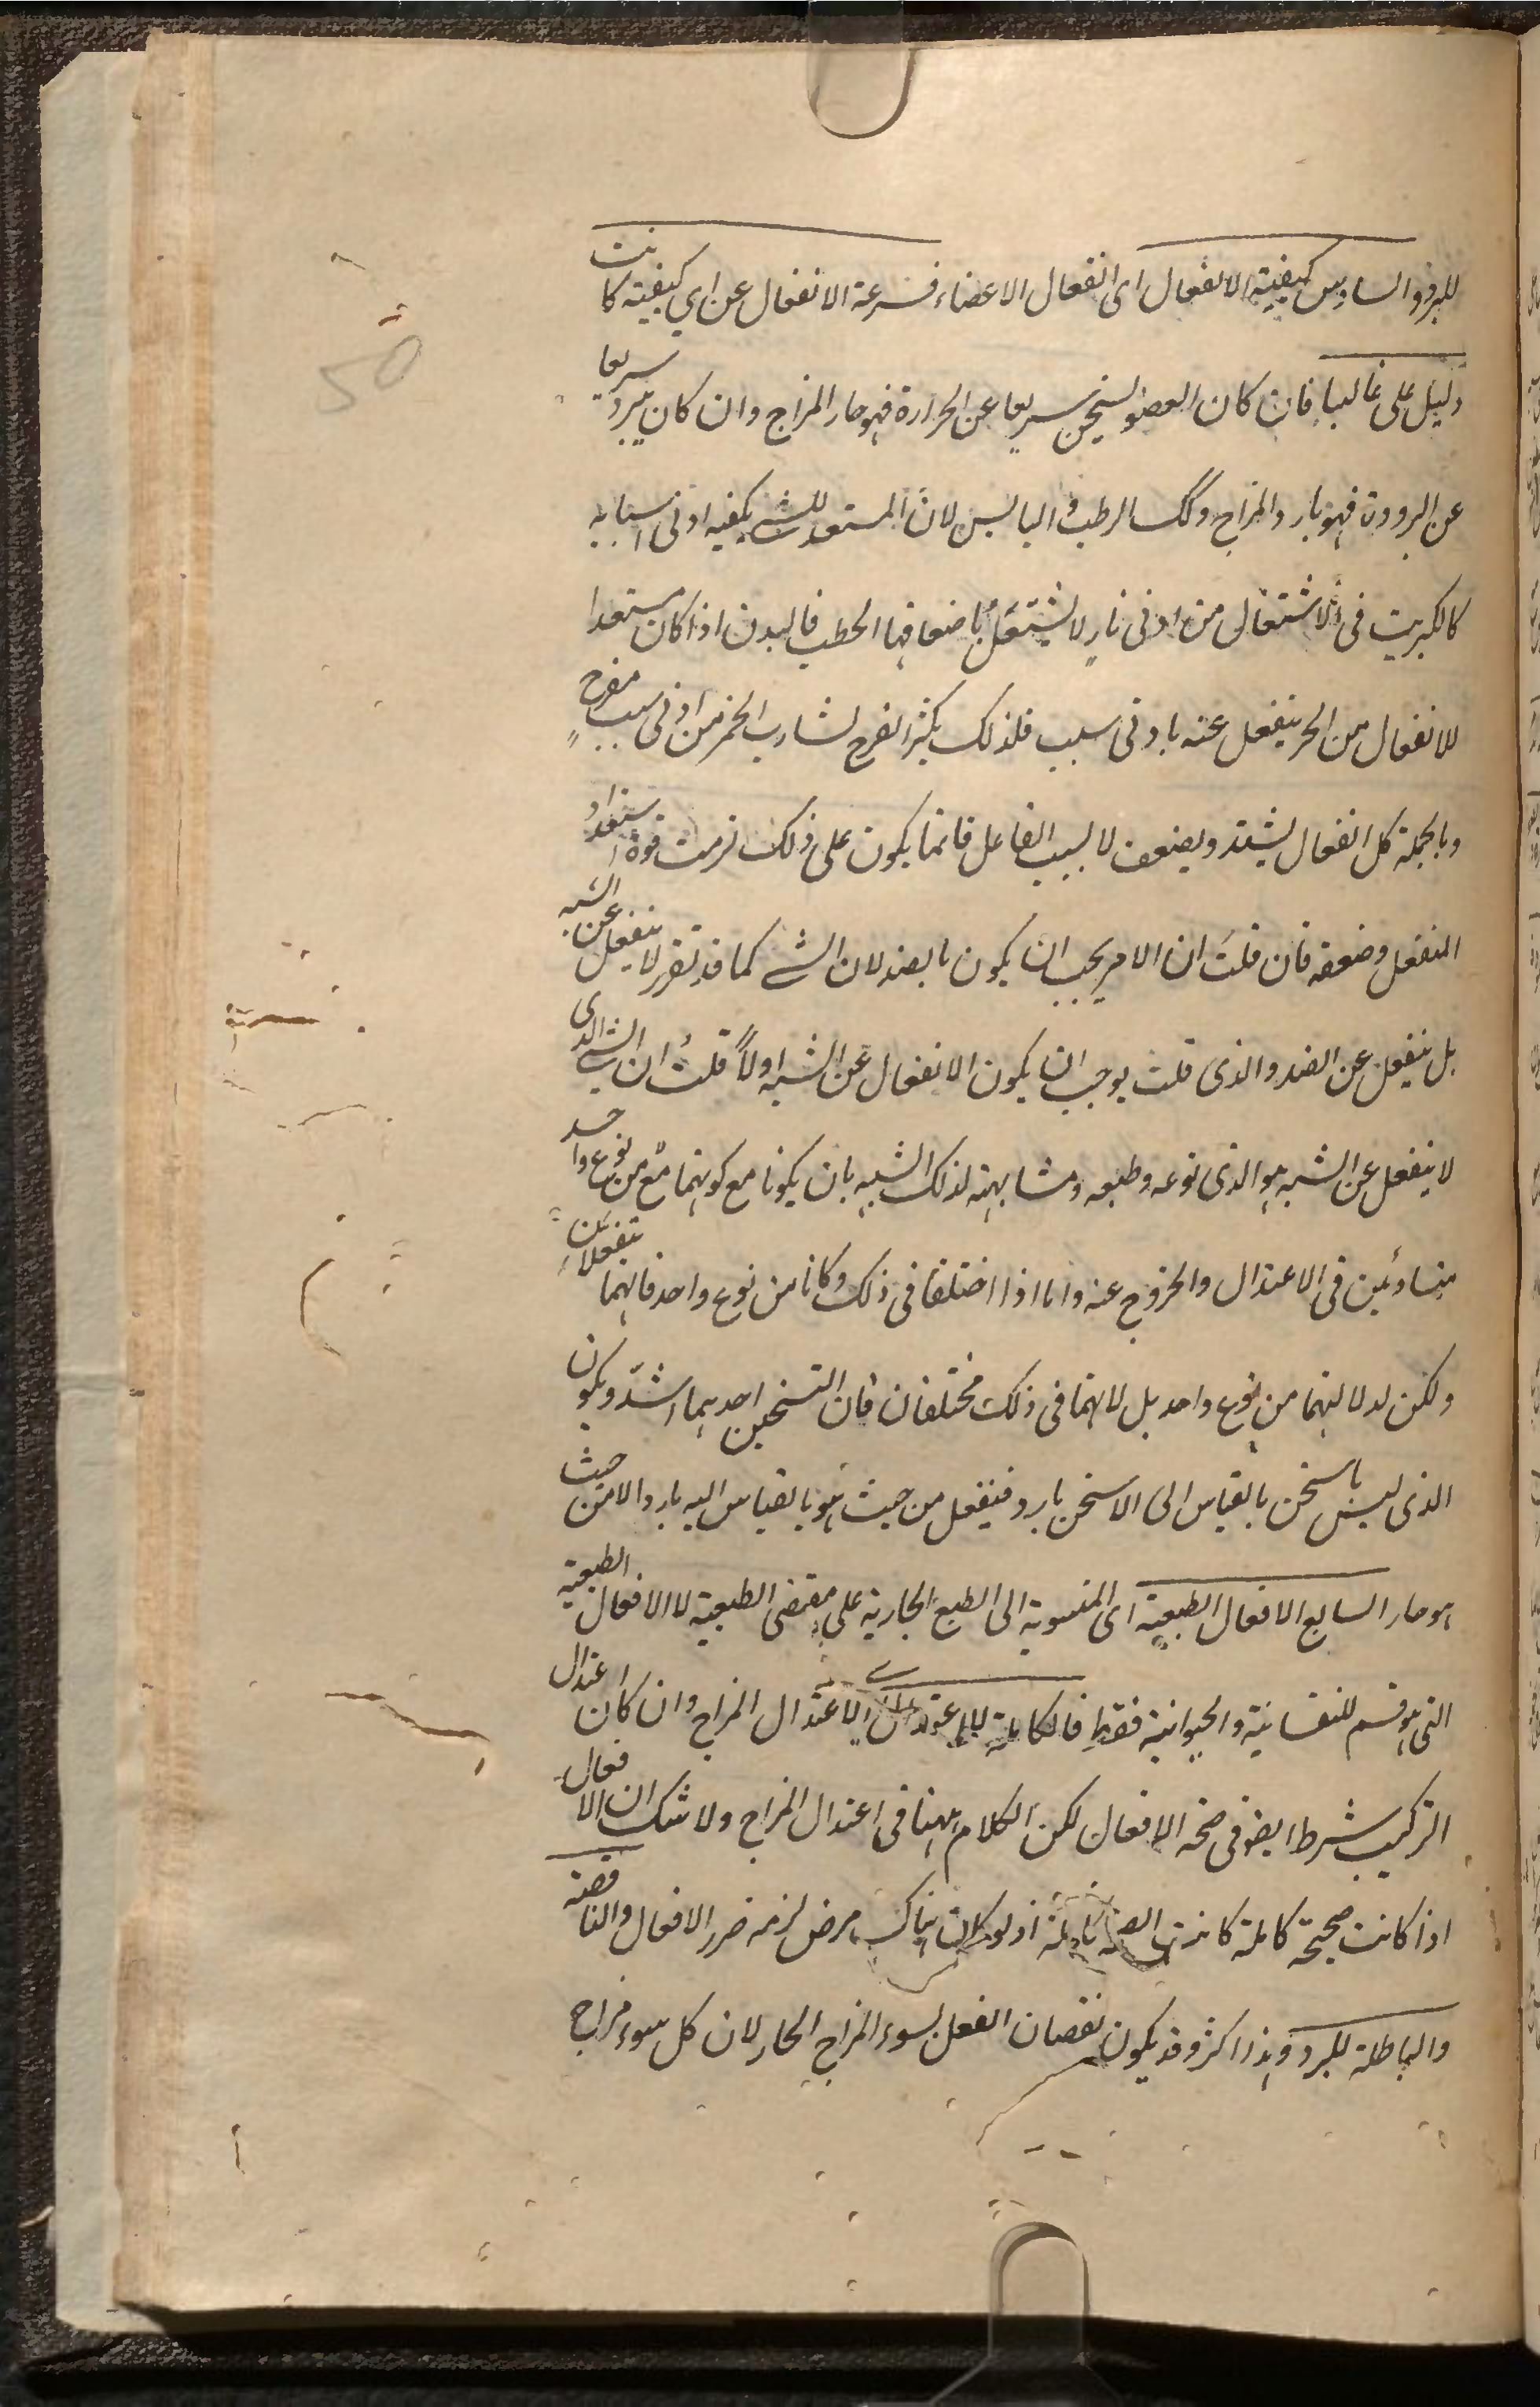 للبرد والسادس كيفية الانفعال اى انفعال الاعضاء فسرعة الانفعال عن اي كيفية كانت
دليل على غالبها فان كان العضو يسخن سريعا عن الحرارة فهو حار المزاج وان كان يبرد سريعا
عن البرودة فهو بارد المزاج وكك الرطب واليابس لان المستعد للشے يكفيه ادنى اسبابه
كالكبريت فى الاشتعال من ادنى نار لا يشتعل باضعافها الحطب فالبدن اذا كان مستعدا
للانفعال من الحر ينفعل عنه بادنى سبب فلذلك يكثر الفرح لشارب الخمر من ادنى سبب مفرح
وبالجملة كل انفعال يشتد ويضعف لا لسبب الفاعل فانما يكون على ذلك قوة استعداد
المنفعل وضعفه فان قلت ان الامر يجب ان يكون بالضد لان الشے كما قد تقرر لا ينفعل عن الشبه
بل ينفعل عن الضد والذى قلت يوجب ان يكون الانفعال عن الشبه اولاً قلتُ ان الشے الذى
لا ينفعل عن الشبه هو الذى نوعه وطبعه ومشابهته لذلك الشبيه بان يكونا مع كونهما من نوع واحد
متساوئين فى الاعتدال والخروج عنه واما اذا اختلفا فى ذلك وكانا من نوع واحد فانهما ينفعلان
ولكن لا لانهما من نوع واحد بل لانهما فى ذلك مختلفان فان التسخين احديهما اشد ويكون
الذى ليس باسخن بالقياس الى الاسخن بارد فينفعل من حيث هو بالقياس اليه بارد لا من حيث
هو حار السابع الافعال الطبعية اى المنسوبة الى الطبع الجارية على مقتضى الطبعية لا الافعال الطبعية
التى هو قسم للنفسانية والحيوانية فقط فالكاملة للاعتدال اى لاعتدال المزاج وان كان اعتدال
التركيب شرط ايضو فى صحة الافعال لكن الكلام ههنا فى اعتدال المزاج ولا شك ان الافعال
اذا كانت صحيحة كاملة كانت الصحة كاملة اذ لو كان هناك مرض لزمه ضرر الافعال والناقصة
والباطلة للبرد وهذا اكثر وقد يكون نقصان الفعل لسوء المزاج الحار لان كل سوء مزاج